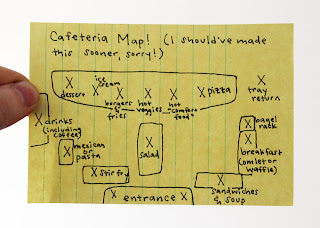 Cafeteria Map! (I should've made
this sooner, sorry!)
X dessert
X ice cream
X borgers & fries
X hot veggies
X hot "comfort food"
X pizza
X tray return
X drinks (including coffee)
X mexican or pasta
X stir fry
X salad
X bagel rack
X breakfast (omlet or waffle)
X sandwiches & soup
X entrance X